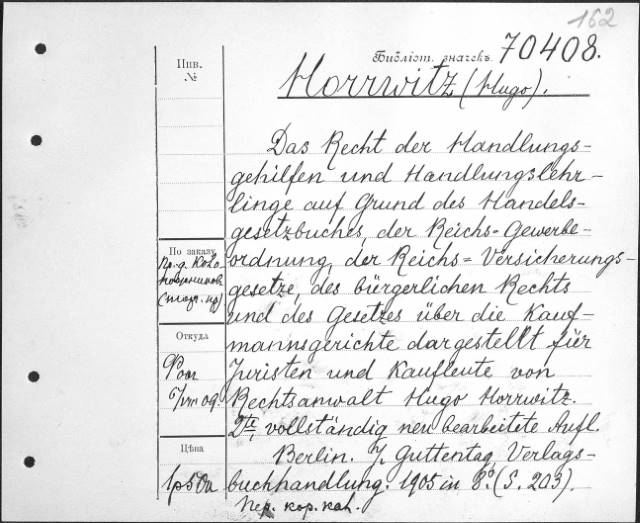 162
Инв.
№
Библіот. значекъ 70408.
Horrwitz (Hugo).
Das Recht der Handlungs-
gehilfen und Handlungslehr-
linge auf Grund des Handels-
gesetzbuches, der Reichs-Gewerbe-
ordnung, der Reichs=Versicherungs-
gesetze, des bürgerlichen Rechts
und des Gesetzes über die Kauf-
mannsgerichte dargestellt für
Juristen und Kaufleute von
Rechtsanwalt Hugo Horrwitz.
2te, vollständig neu bearbeitete Aufl.
Berlin. J. Guttentag, Verlags-
buchhandlung. 1905 in 8º. (S. 203).
Пер. кор. кож.
По заказу
Откуда
Цѣна